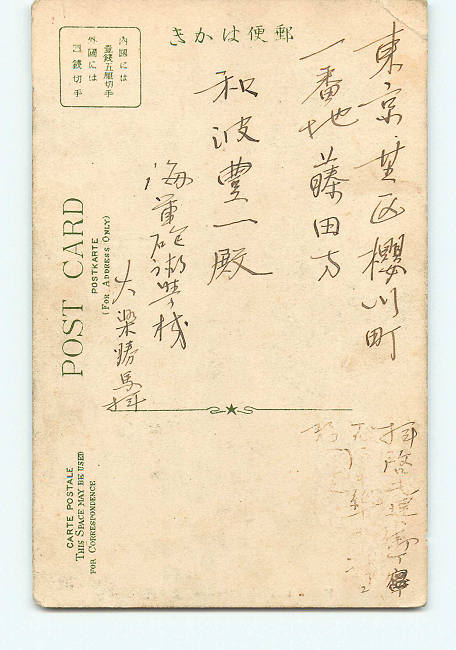 きかは便郵
内國には
壹錢五厘切手
外國には
四錢切手
東京芝区櫻川町
一番地藤田方
和波豊一殿
海軍砲術學校
大梁勝馬拝
POST CARD
POSTKARTE
(FOR ADDRESS ONLY)
CARTE POSTALE
THIS SPACE MAY BE USED
FOR CORRESPONDENCE
拝啓